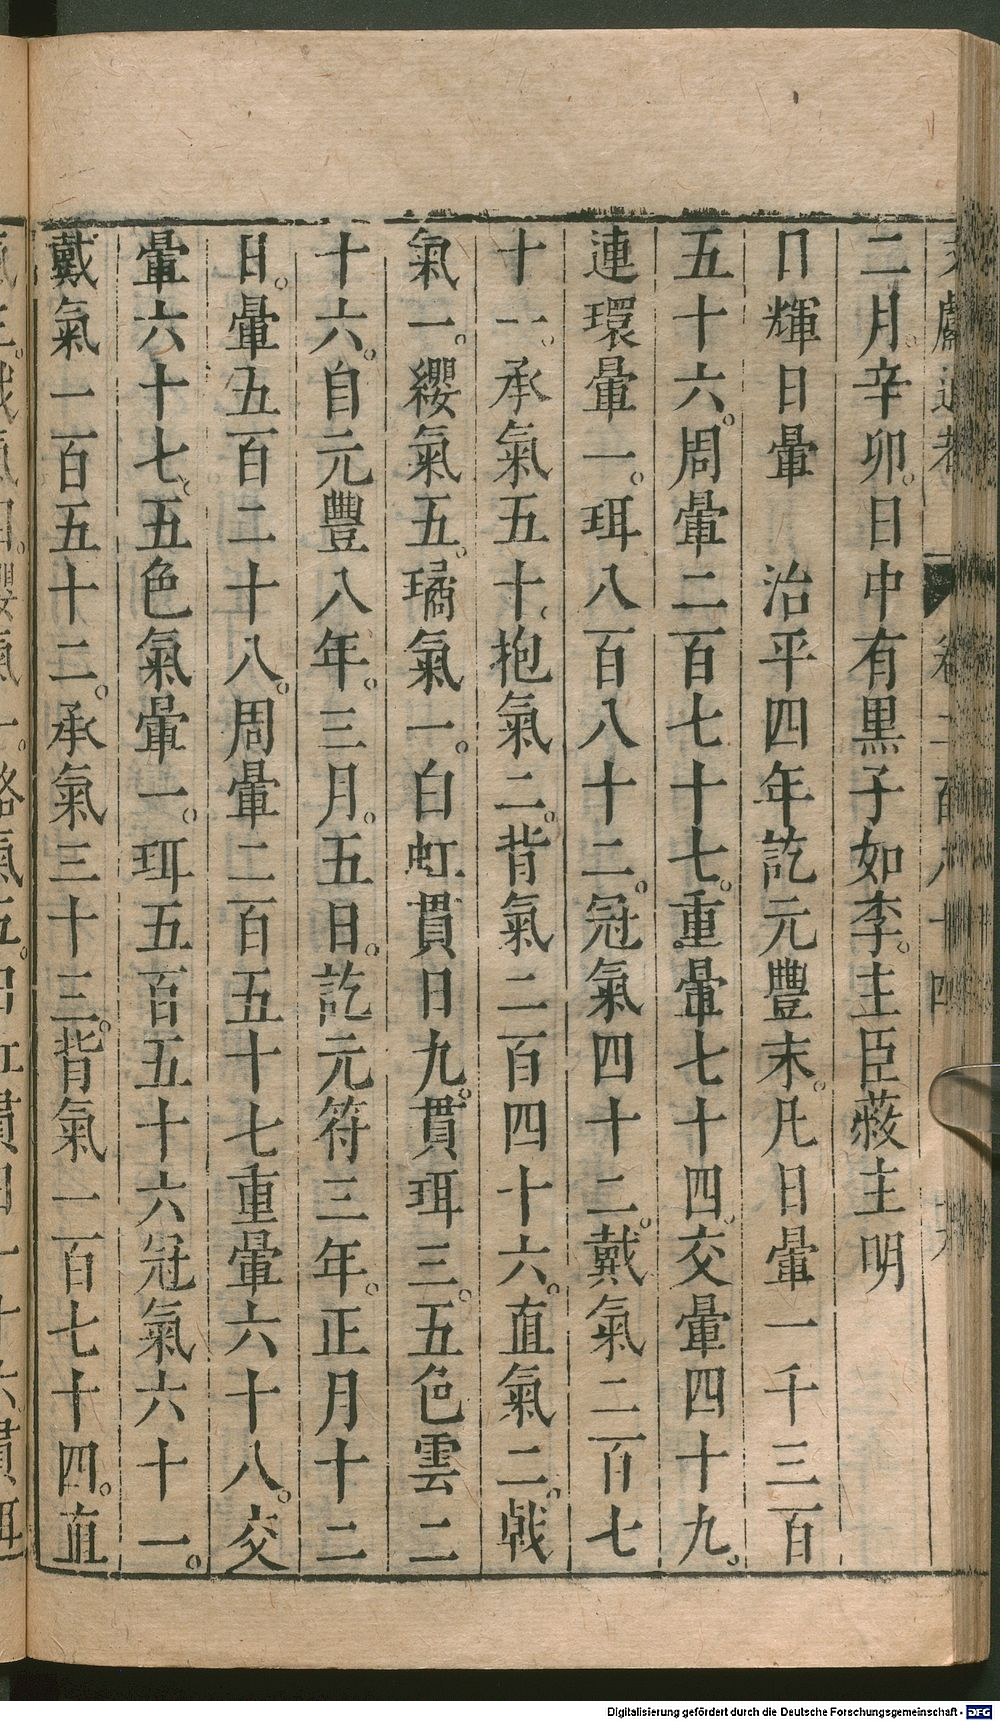 二月。辛卯。日中有黒子如李。主臣蔽主明
日輝日暈 治平四年訖元豐末。凡日暈一千三百
五十六。周暈二百七十七。重暈七十四。交暈四十九。
連環暈一。珥八百八十二。冠氣四十二。戴氣二百七
十一。承氣五十。抱氣二。背氣二百四十六。直氣二。戟
氣一。纓氣五。璚氣一。白虹貫日九。貫珥三。五色雲二
十六。自元豐八年。三月。五日。訖元符三年。正月十二
日。暈五百二十八。周暈二百五十七重暈六十八。交
暈六十七。五色氣暈一。珥五百五十六冠氣六十一。
戴氣一百五十二。承氣三十三。背氣一百七十四。直
Digitalisierung gefördert durch die Deutsche Forschungsgemeinschaft - DFG